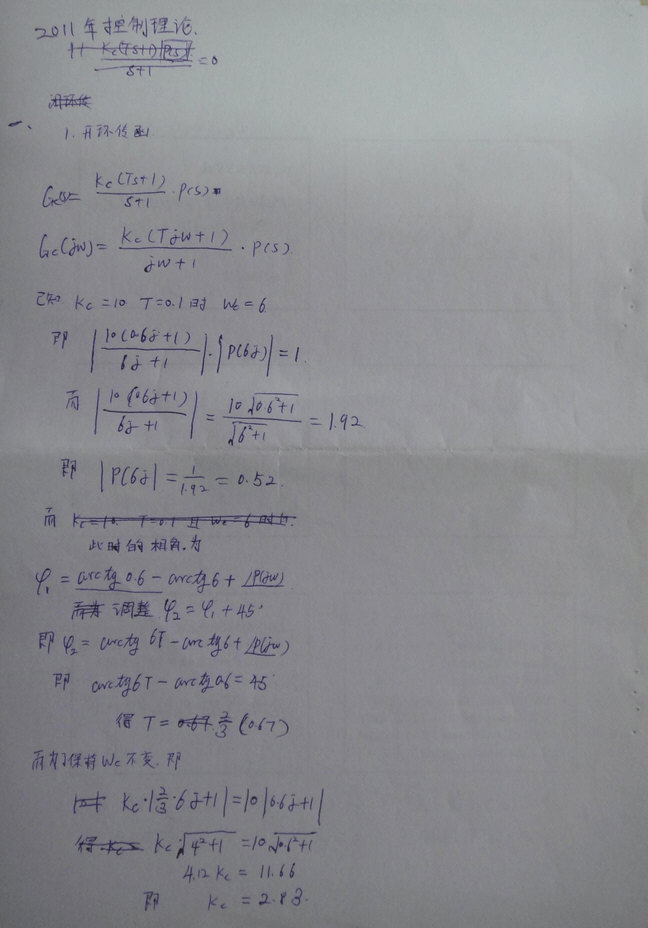 2011年控制理论.
1+ Kc(Ts+1)|P(s)| / s+1 = 0
闭环传
一.
1. 开环传函
Gc(s)= Kc(Ts+1) / s+1 · P(s)
Gc(jw)= Kc(Tjw+1) / jw+1 · P(s)
已知 Kc=10 T=0.1时 Wc=6.
即 |10(0.6j+1) / 6j+1| · |P(6j)| = 1.
而 |10(0.6j+1) / 6j+1| = 10√0.6²+1 / √6²+1 = 1.92
即 |P(6j)| = 1/1.92 = 0.52.
而 Kc=10. T=0.1 且 Wc=6时的.
此时的相角.为
φ₁ = arctg 0.6 - arctg 6 + ∠P(jw)
调整 φ₂ = φ₁ + 45°
即 φ₂ = arctg 6T - arctg 6 + ∠P(jw)
即 arctg 6T - arctg 0.6 = 45°
得 T = 0.67 2/3 (0.67)
而为了保持Wc不变.即
Kc·|2/3·6j+1| = 10|0.6j+1|
得 Kc Kc·√4²+1 = 10√0.6²+1
4.12 Kc = 11.66
即 Kc = 2.83.